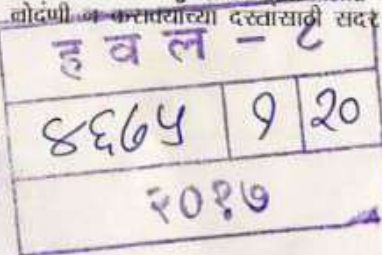 नोंदणी न करावयाच्या दस्तासाठी सदर
ह व ल - ८
४६७५ १ २०
२०१७